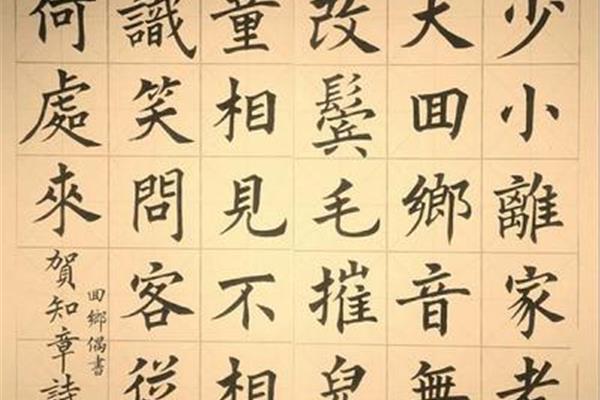 少小離家老
大囬鄉音無
改鬢毛摧兒
童相見不相
識笑問客從
何處來
囬鄉偶書
賀知章詩